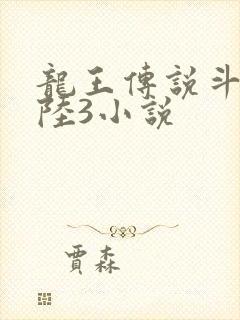 龍王傳說斗
陸3小說
賈森